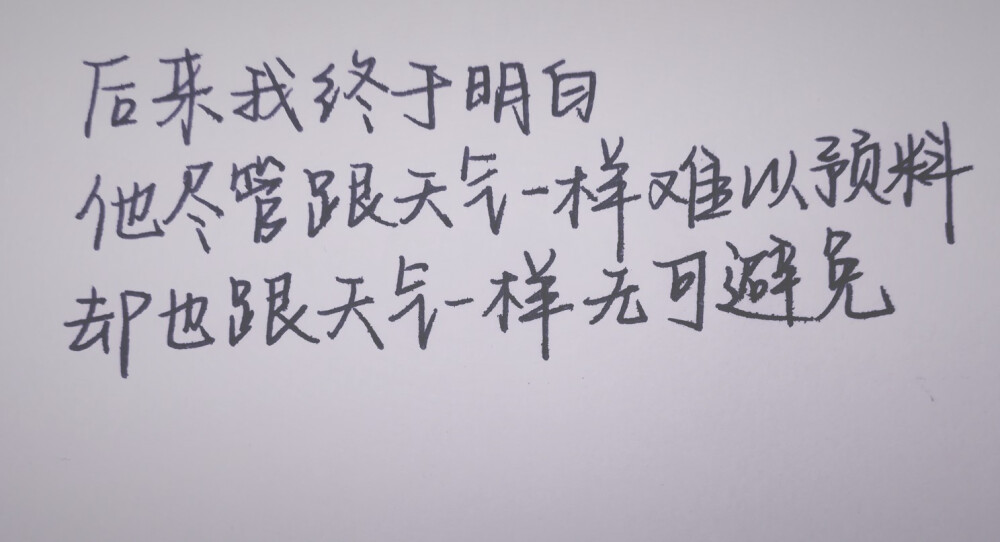 后来我终于明白
他尽管跟天气一样难以预料
却也跟天气一样无可避免